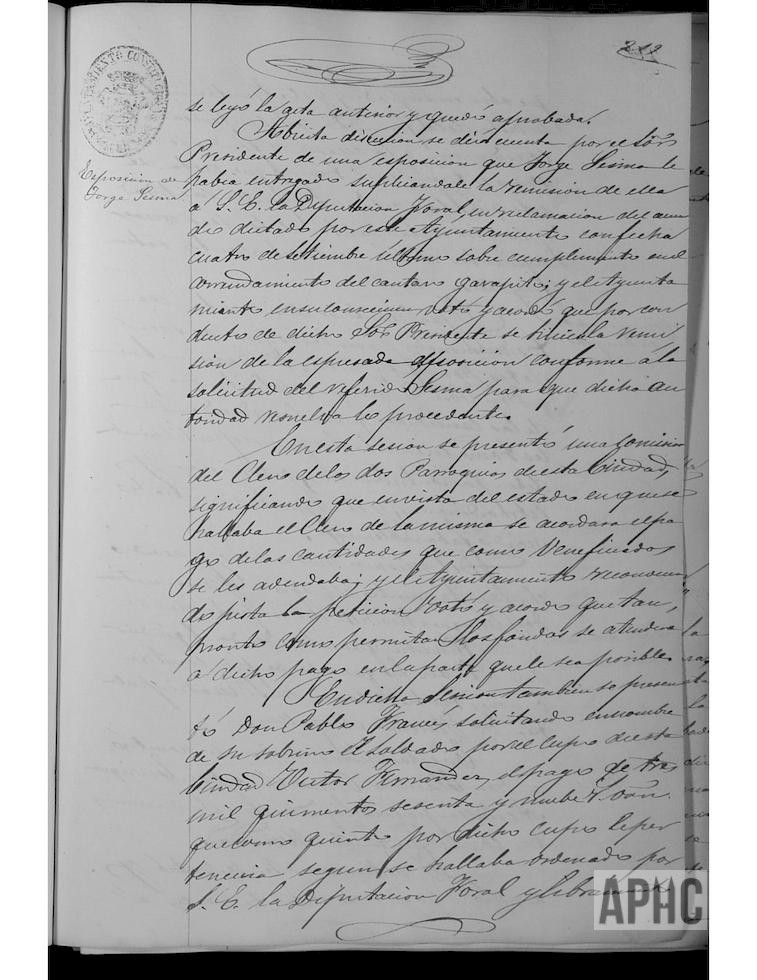 212
AYUNTAMIENTO CONSTITUCIONAL
se leyó la acta anterior y quedó aprobada.
Abierta discusion se dió cuenta por el Sór
Exposicion de
Jorge Sesma
Presidente de una esposicion que Jorge Sesma le
habia entregado suplicandole la remision de ella
a S. E. la Diputacion Foral, en reclamacion del acuer
do dictado por este Ayuntamiento con fecha
cuatro de Setiembre último sobre cumplimiento en el
arrendamiento del cantaro garapito; y el Ayunta
miento en su votó y acordó que por con
ducto de dicho Sór Presidente se hiciela remi
sion de la espresada esposicion conforme á la
solicitud del referido Sesma para que dicha au
toridad resuelva lo procedente.
En esta sesion se presentó una Comision
del Clero de las dos Parroquias de esta Ciudad,
significando que en vista del estado en que se
hallaba el Clero de la misma se acordara el pa
go de las cantidades que como Veneficiados
se les adeudaba; y el Ayuntamiento reconocien
do justa la peticion votó y acordó que tan
pronto como permitan los fondos se atendera
a dicho pago en la parte que le sea posible.
En dicha Sesion tambien se presen
tó Don Pablo Francés, solicitando en nombre
de su sobrino el soldado por el cupo de esta
Ciudad Victor Fernandez, el pago de tres
mil quinientos sesenta y nueve r. von.
que como quinto por dicho cupo le per
tenecia segun se hallaba ordenado por
S. E. la Diputacion Foral y
APHC